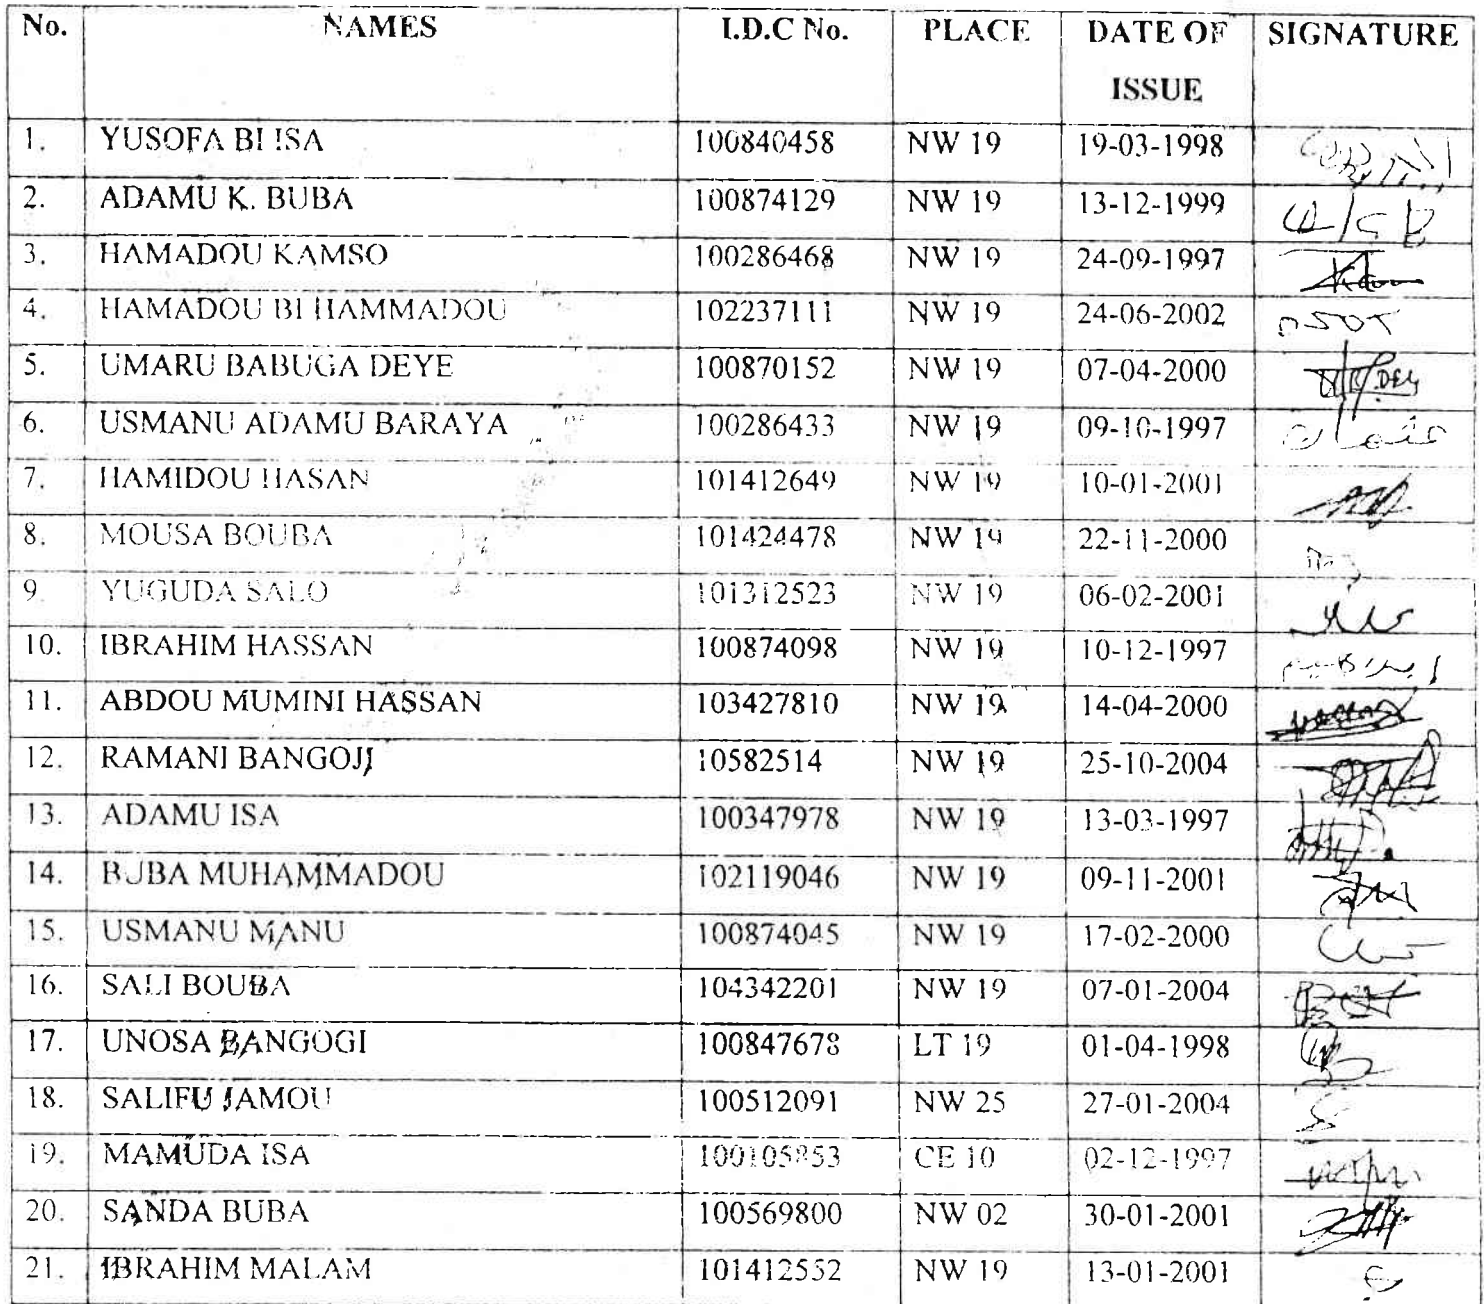 No. NAMES I.D.C No. PLACE DATE OF ISSUE SIGNATURE
1. YUSOFA BI ISA 100840458 NW 19 19-03-1998
2. ADAMU K. BUBA 100874129 NW 19 13-12-1999
3. HAMADOU KAMSO 100286468 NW 19 24-09-1997
4. HAMADOU BI HAMMADOU 102237111 NW 19 24-06-2002
5. UMARU BABUGA DEYE 100870152 NW 19 07-04-2000
6. USMANU ADAMU BARAYA 100286433 NW 19 09-10-1997
7. HAMIDOU HASAN 101412649 NW 19 10-01-2001
8. MOUSA BOUBA 101424478 NW 19 22-11-2000
9. YUGUDA SALO 101312523 NW 19 06-02-2001
10. IBRAHIM HASSAN 100874098 NW 19 10-12-1997
11. ABDOU MUMINI HASSAN 103427810 NW 19 14-04-2000
12. RAMANI BANGOJI 10582514 NW 19 25-10-2004
13. ADAMU ISA 100347978 NW 19 13-03-1997
14. BUBA MUHAMMADOU 102119046 NW 19 09-11-2001
15. USMANU MANU 100874045 NW 19 17-02-2000
16. SALI BOUBA 104342201 NW 19 07-01-2004
17. UNOSA BANGOGI 100847678 LT 19 01-04-1998
18. SALIFU JAMOU 100512091 NW 25 27-01-2004
19. MAMUDA ISA 100105853 CE 10 02-12-1997
20. SANDA BUBA 100569800 NW 02 30-01-2001
21. IBRAHIM MALAM 101412552 NW 19 13-01-2001